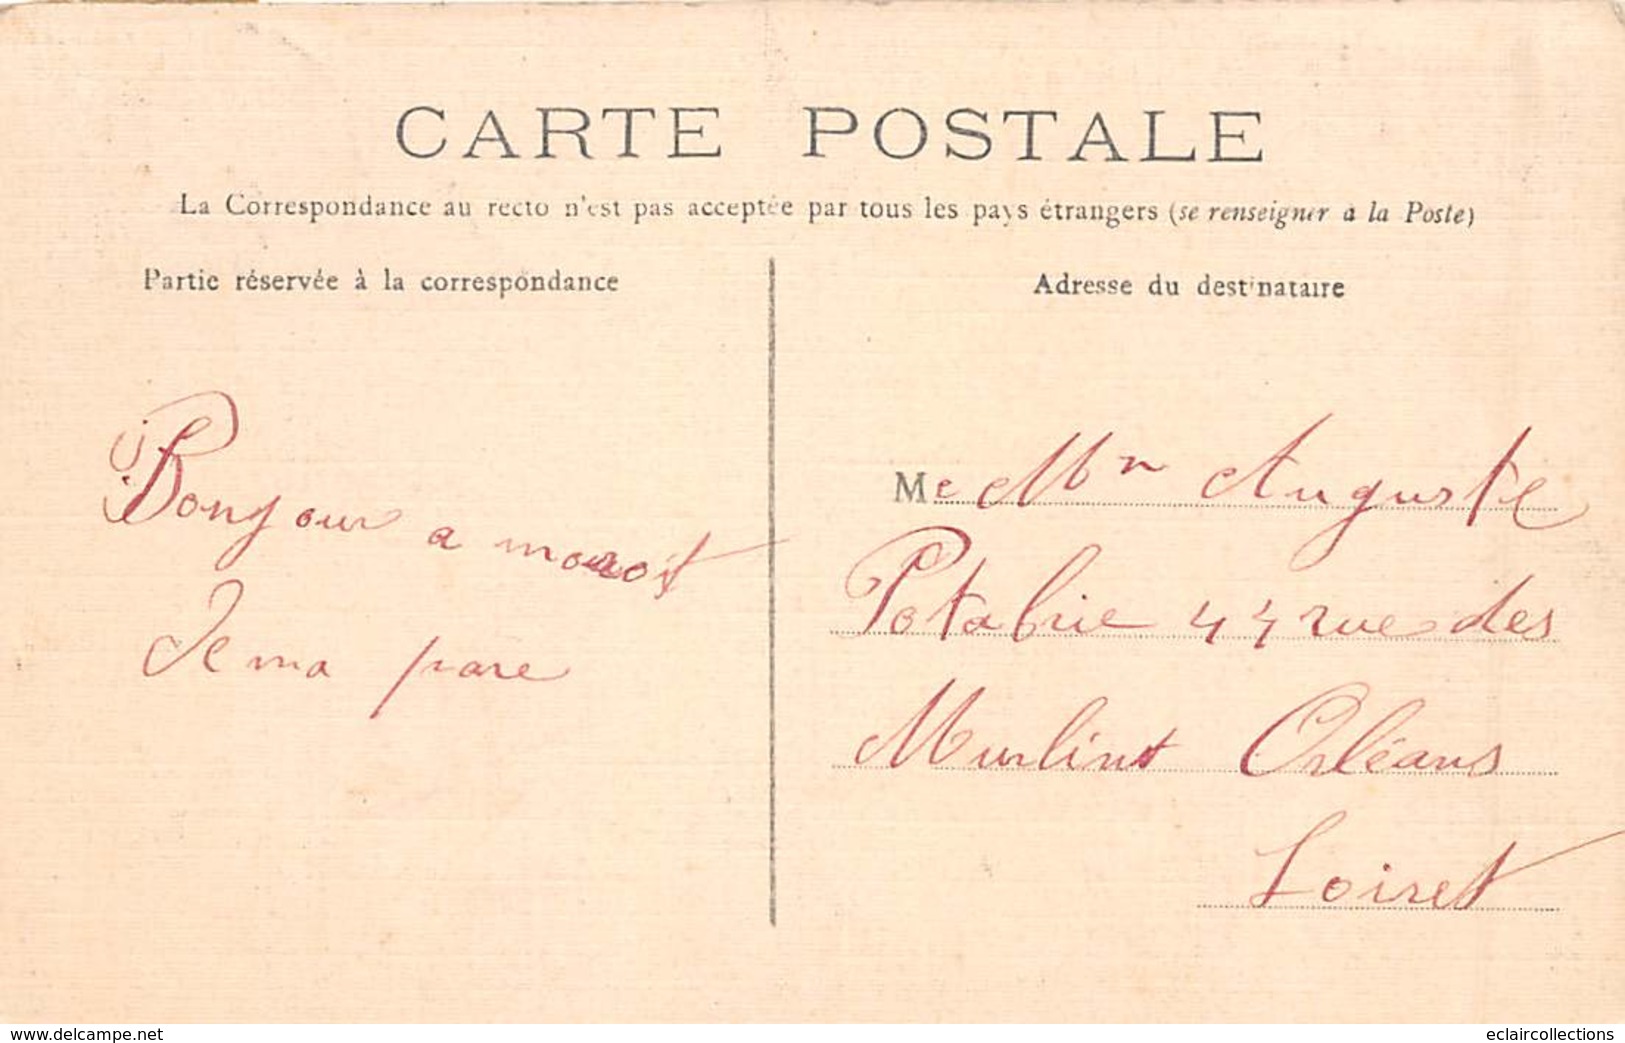 CARTE POSTALE
La Correspondance au recto n'est pas acceptée par tous les pays étrangers (se renseigner à la Poste)
Partie réservée à la correspondance
Bonjour a
Je ma pare
Adresse du destinataire
Me Mon Auguste
Potabrie 44 rue des
Murlins Orléans
Loiret
www.delcampe.net
eclaircollections